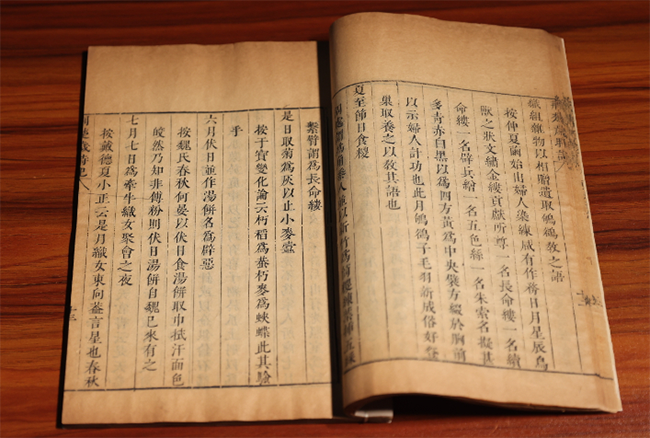 織組雜物以相贈遺取鴝鵒教之語
按仲夏繭始出婦人染練咸有作務日月星辰鳥
獸之狀文繡金縷貢獻所尊一名長命縷一名續
命縷一名辟兵繒一名五色絲一名朱索名擬甚
多青赤白黑以爲四方黃爲中央襞方綴於胸前
以示婦人計功也此月鴝鵒子毛羽新成俗好登
巢取養之以教其語也
夏至節日食糉
人並以新竹爲筒糉
繫臂謂爲長命縷
是日取菊爲灰以止小麥蠹
按干寶變化論云朽稻爲蛬朽麥爲蛺蝶此其驗
乎
六月伏日並作湯餅名爲辟惡
按魏氏春秋何晏以伏日食湯餅取巾拭汗面色
皎然乃知非傅粉則伏日湯餅自魏已來有之
七月七日爲牽牛織女聚會之夜
按戴德夏小正云是月織女東向蓋言星也春秋